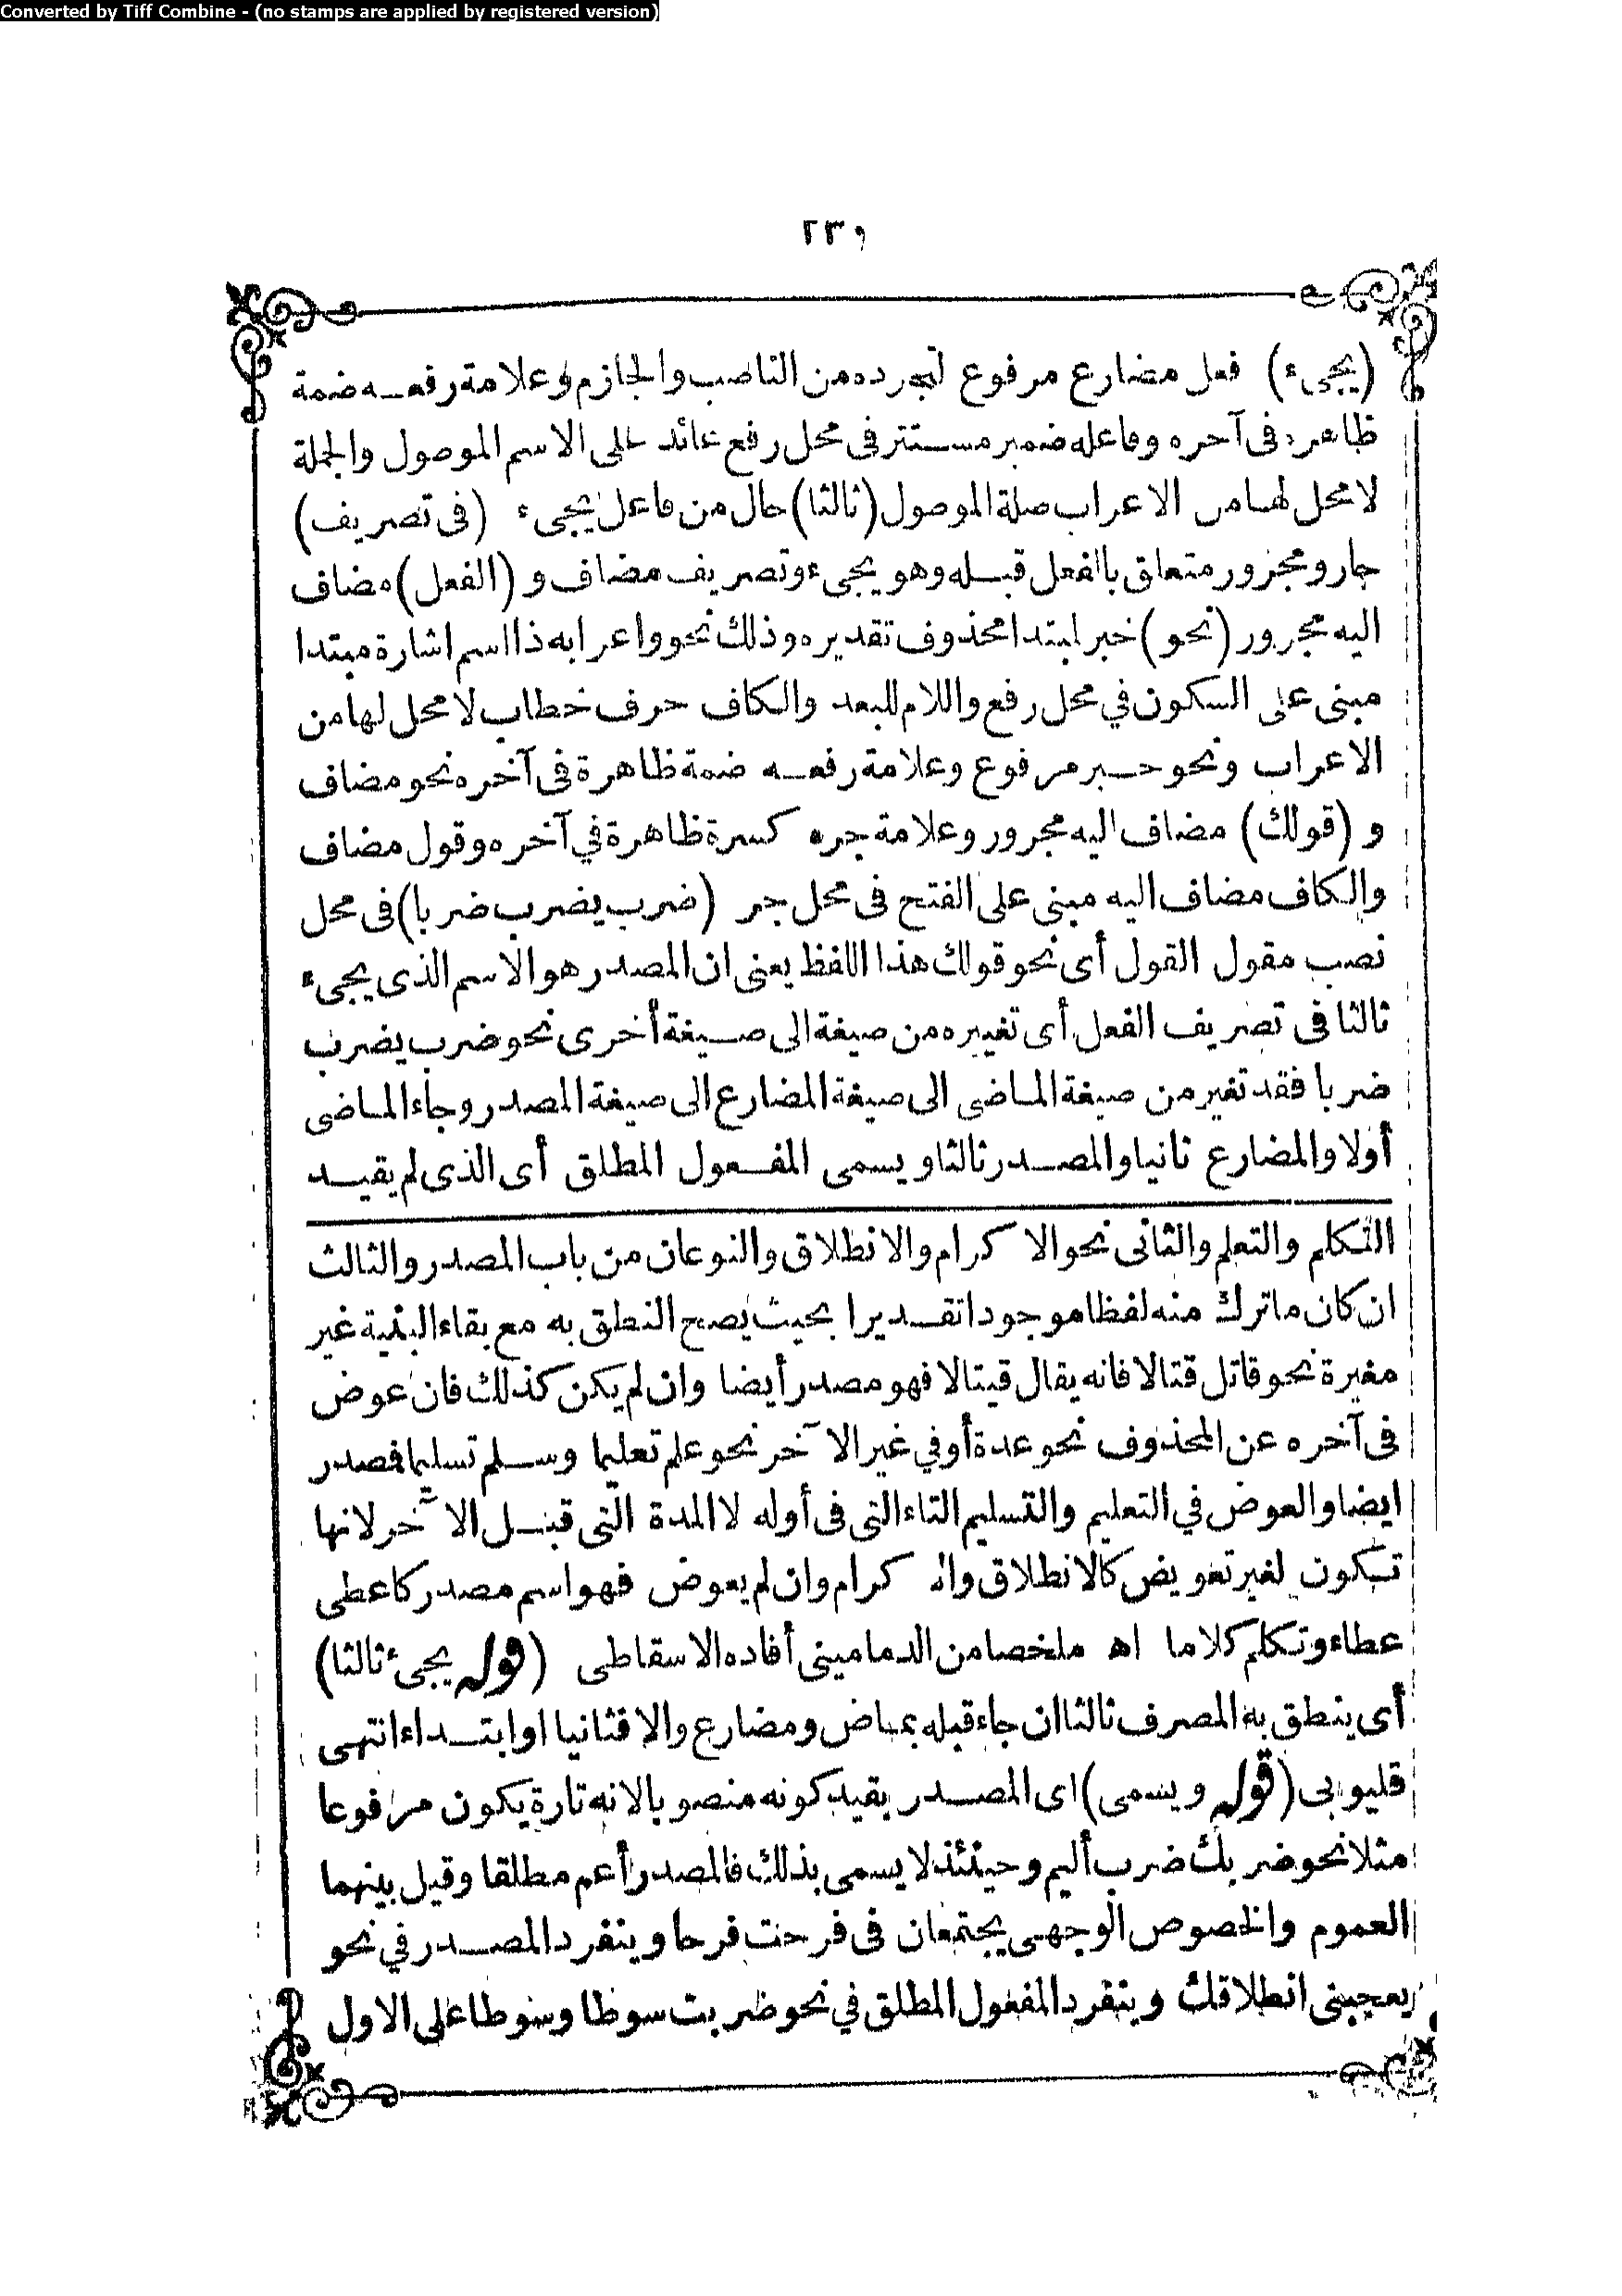 Converted by Tiff Combine - (no stamps are applied by registered version)
٢٣٩
(يجىء) فعل مضارع مرفوع لتجرده من الناصب والجازم وعلامة رفعه ضمة
ظاهرة فى آخره وفاعله ضمير مستتر فى محل رفع عائد على الاسم الموصول والجملة
لا محل لها من الاعراب صلة الموصول (ثالثا) حال من فاعل يجىء (فى تصريف)
جار ومجرور متعلق بالفعل قبله وهو يجىء وتصريف مضاف و (الفعل) مضاف
اليه مجرور (نحو) خبر لمبتدا محذوف تقديره وذلك نحو واعرابه ذا اسم اشارة مبتدا
مبنى على السكون في محل رفع واللام للبعد والكاف حرف خطاب لا محل لها من
الاعراب ونحو خبر مرفوع وعلامة رفعه ضمة ظاهرة فى آخره نحو مضاف
و (قولك) مضاف اليه مجرور وعلامة جره كسرة ظاهرة في آخره وقول مضاف
والكاف مضاف اليه مبنى على الفتح فى محل جر (ضرب يضرب ضربا) فى محل
نصب مقول القول أى نحو قولك هذا اللفظ يعنى ان المصدر هو الاسم الذى يجىء
ثالثا فى تصريف الفعل أى تغييره من صيغة الى صيغة أخرى نحو ضرب يضرب
ضربا فقد تغير من صيغة الماضى الى صيغة المضارع الى صيغة المصدر وجاء الماضى
أولا والمضارع ثانيا والمصدر ثالثا ويسمى المفعول المطلق أى الذى لم يقيد
التكلم والتعلم والثانى نحو الاكرام والانطلاق والنوعان من باب المصدر والثالث
ان كان ماترك منه لفظا موجودا تقديرا بحيث يصح النطق به مع بقاء البنية غير
مغيرة نحو قاتل قتالا فانه يقال قيتالا فهو مصدر أيضا وان لم يكن كذلك فان عوض
فى آخره عن المحذوف نحو عدة أو في غير الآخر نحو علم تعليما وسلم تسليما فمصدر
ايضا والعوض في التعليم والتسليم التاء التى فى أوله لا المدة التى قبل الآخر لانها
تكون لغير تعويض كالانطلاق والاكرام وان لم يعوض فهو اسم مصدر كاعطى
عطاء وتكلم كلاما اه ملخصا من الدمامينى أفاده الاسقاطى (قوله يجىء ثالثا)
أى ينطق به المصرف ثالثا ان جاء قبله بماض ومضارع والا فثانيا او ابتداء انتهى
قليوبى (قوله ويسمى) اى المصدر بقيد كونه منصوبا لانه تارة يكون مرفوعا
مثلا نحو ضربك ضرب أليم وحينئذ لا يسمى بذلك فالمصدر أعم مطلقا وقيل بينهما
العموم والخصوص الوجهى يجتمعان فى فرحت فرحا وينفرد المصدر في نحو
يعجبنى انطلاقك وينفرد المفعول المطلق في نحو ضربت سوطا وسوطا على الاول